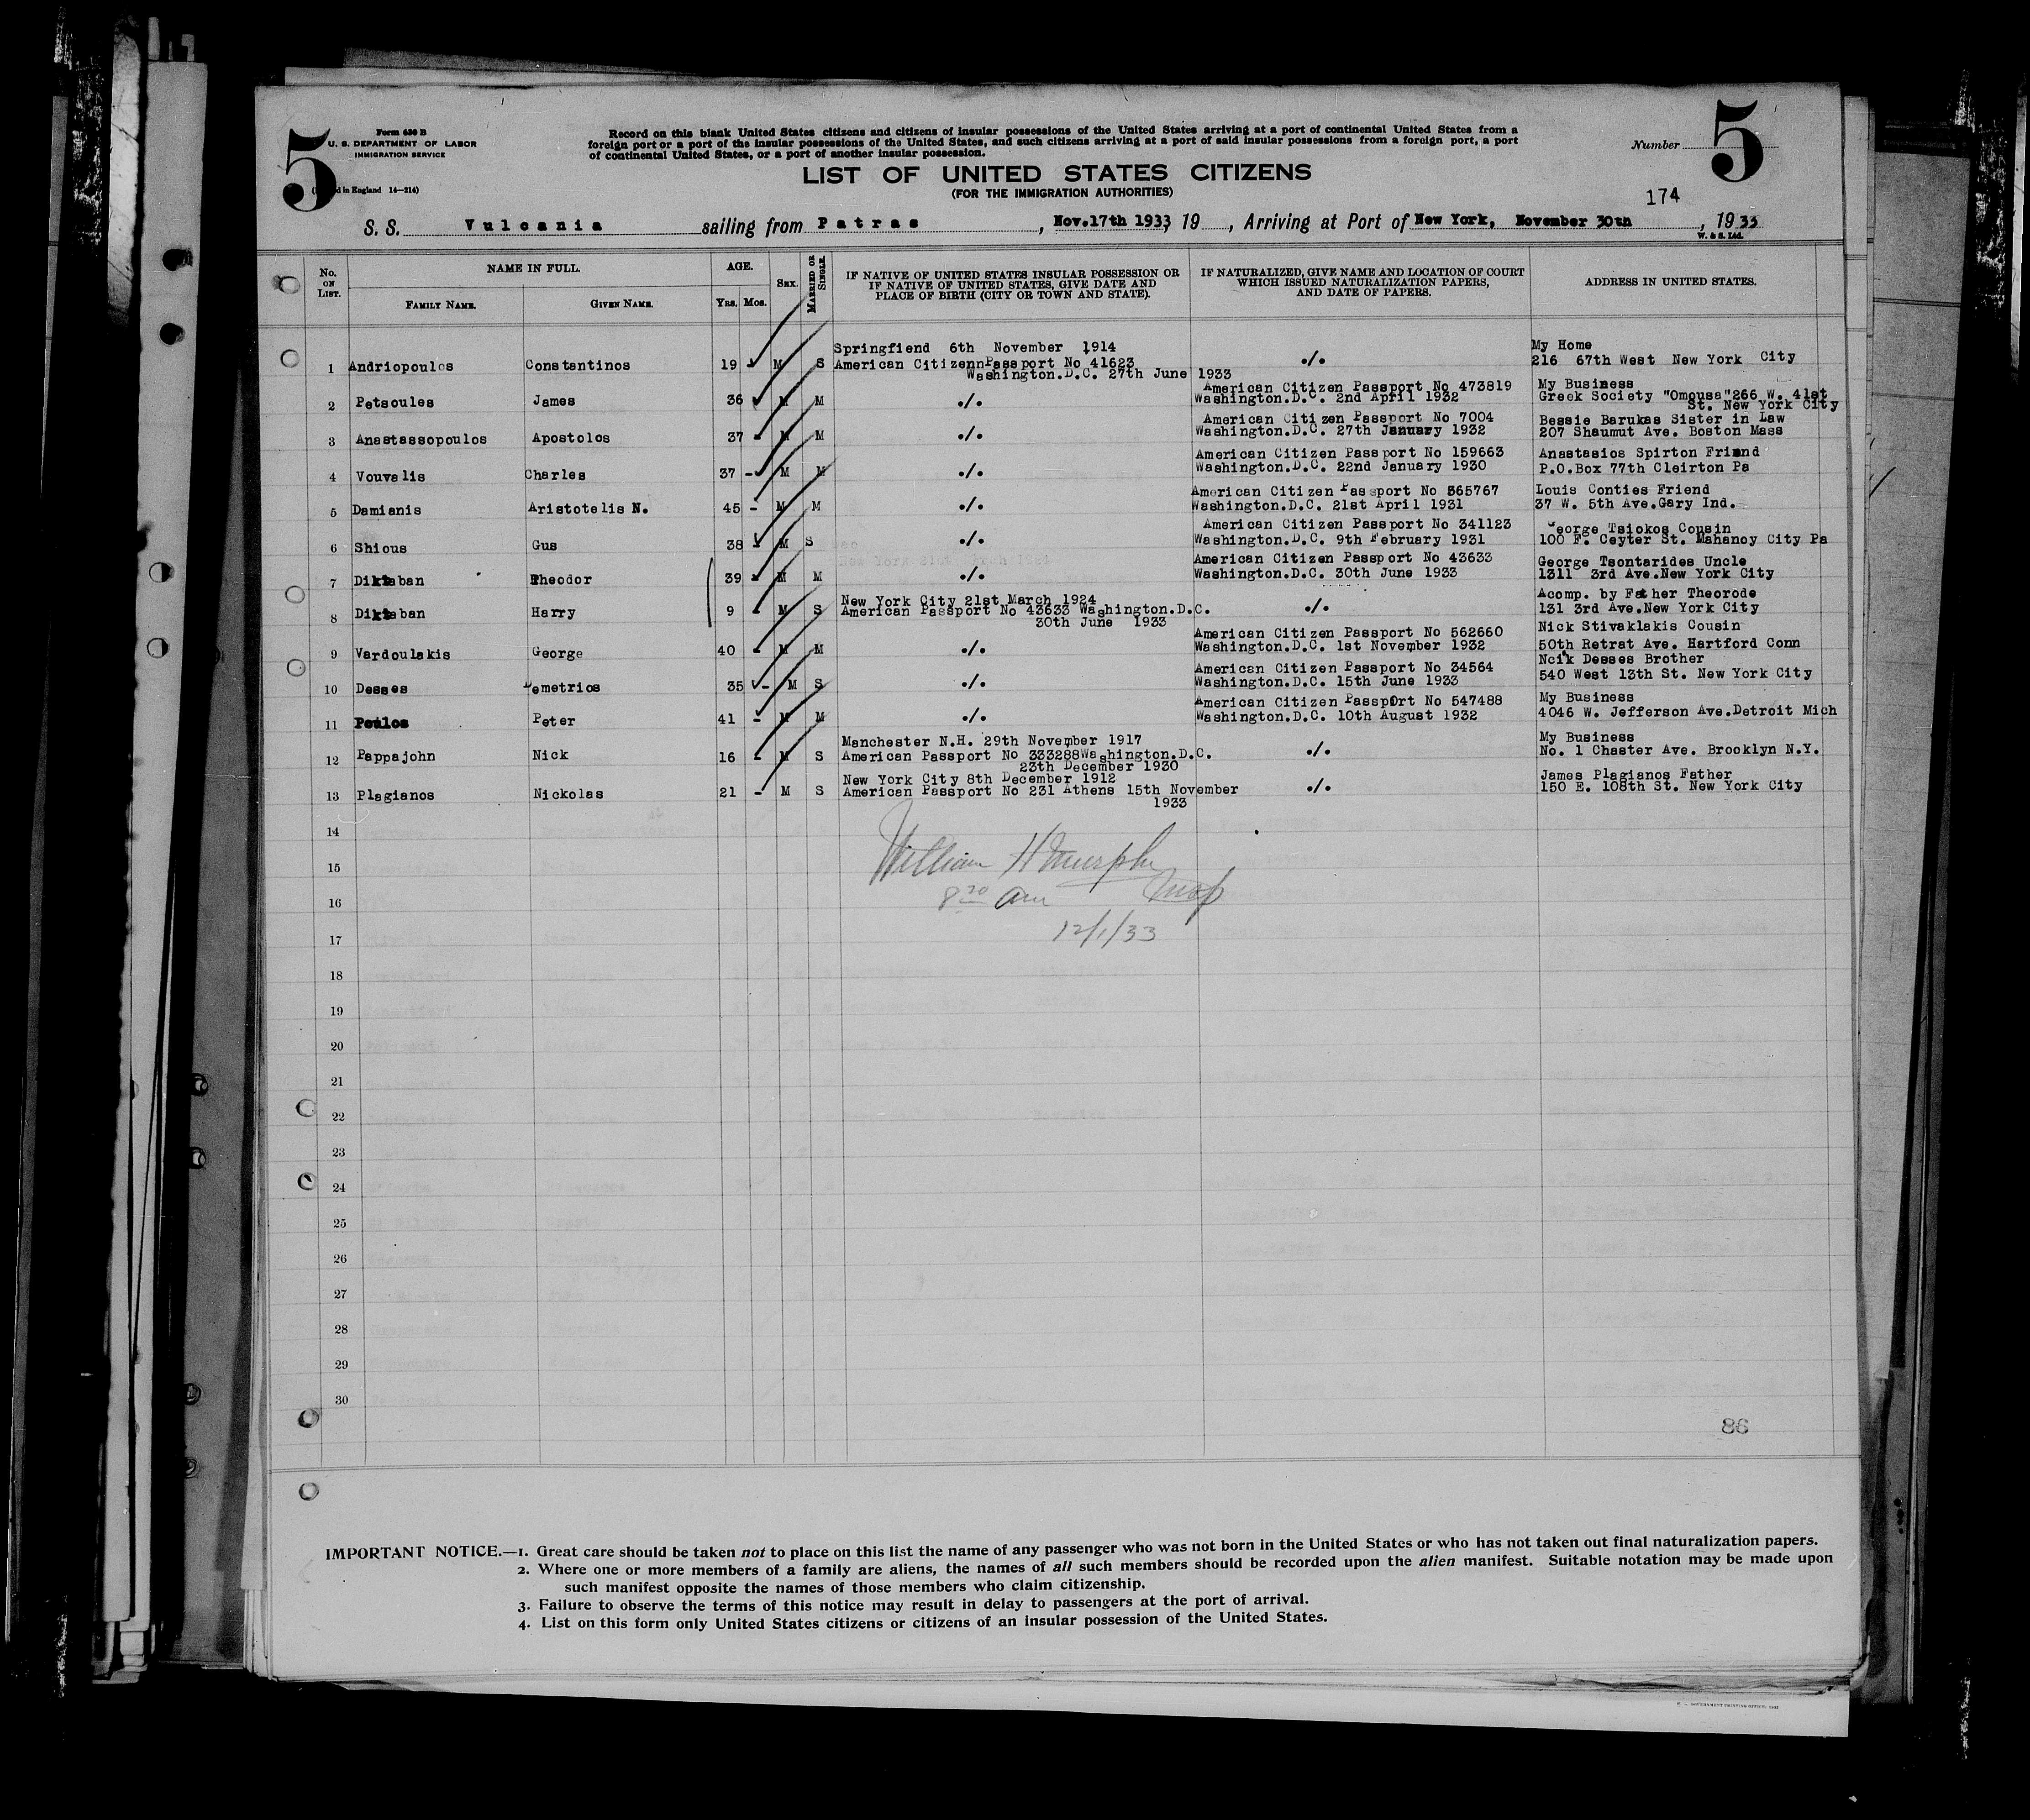 5
Form 630 B
U. S. DEPARTMENT OF LABOR
IMMIGRATION SERVICE
d in England 14—214)
Record on this blank United States citizens and citizens of insular possessions of the United States arriving at a port of continental United States from a
foreign port or a port of the insular possessions of the United States, and such citizens arriving at a port of said insular possessions from a foreign port, a port
of continental United States, or a port of another insular possession.
Number 5
LIST OF UNITED STATES CITIZENS
(FOR THE IMMIGRATION AUTHORITIES)
174
S. S. Vulcania sailing from Patras, Nov.17th 1933, 19 , Arriving at Port of New York, November 30th, 1933
W. & S. Ltd.
No. ON LIST. NAME IN FULL. AGE. SEX. MARRIED OR SINGLE. IF NATIVE OF UNITED STATES INSULAR POSSESSION OR IF NATIVE OF UNITED STATES, GIVE DATE AND PLACE OF BIRTH (CITY OR TOWN AND STATE). IF NATURALIZED, GIVE NAME AND LOCATION OF COURT WHICH ISSUED NATURALIZATION PAPERS, AND DATE OF PAPERS. ADDRESS IN UNITED STATES.
FAMILY NAME. GIVEN NAME. YRS. MOS.
Springfiend 6th November 1914 My Home
1 Andriopoulos Constantinos 19 M S American CitizennPassport No 41623 ./. 216 67th West New York City
Washington.D.C. 27th June 1933
American Citizen Passport No 473819 My Business
2 Petsoules James 36 M M ./. Washington.D.C. 2nd April 1932 Greek Society "Omousa"266 W. 41st
St. New York City
American Citizen Passport No 7004 Bessie Barukas Sister in Law
3 Anastassopoulos Apostolos 37 - M M ./. Washington.D.C. 27th January 1932 207 Shaumut Ave. Boston Mass
American Citizen Passport No 159663 Anastasios Spirton Friend
4 Vouvalis Charles 37 - M M ./. Washington.D.C. 22nd January 1930 P.O.Box 77th Cleirton Pa
American Citizen Passport No 365767 Louis Conties Friend
5 Damianis Aristotelis N. 45 - M M ./. Washington.D.C. 21st April 1931 37 W. 5th Ave.Gary Ind.
American Citizen Passport No 341123 George Tsiokos Cousin
6 Shious Gus 38 - M S ./. Washington.D.C. 9th February 1931 100 F. Ceyter St. Mahanoy City Pa
American Citizen Passport No 43633 George Tsontarides Uncle
7 Diktaban Theodor 39 - M M ./. Washington.D.C. 30th June 1933 1311 3rd Ave.New York City
New York City 21st March 1924 Acomp. by Father Theorode
8 Diktaban Harry 9 - M S American Passport No 43633 Washington.D.C. ./. 131 3rd Ave.New York City
30th June 1933
American Citizen Passport No 562660 Nick Stivaklakis Cousin
9 Vardoulakis George 40 - M M ./. Washington.D.C. 1st November 1932 50th Retrat Ave. Hartford Conn
American Citizen Passport No 34564 Ncik Desses Brother
10 Desses Demetrios 35 - M S ./. Washington.D.C. 15th June 1933 540 West 13th St. New York City
American Citizen Passport No 547488 My Business
11 Poulos Peter 41 - M M ./. Washington.D.C. 10th August 1932 4046 W. Jefferson Ave.Detroit Mich
Manchester N.H. 29th November 1917 My Business
12 Pappajohn Nick 16 - M S American Passport No 333288Washington.D.C. ./. No. 1 Chaster Ave. Brooklyn N.Y.
23th December 1930
New York City 8th December 1912 James Plagianos Father
13 Plagianos Nickolas 21 - M S American Passport No 231 Athens 15th November ./. 150 E. 108th St. New York City
1933
14
15 William H Murphy
16 8 30 am Insp
17 12/1/33
18
19
20
21
22
23
24
25
26
27
28
29
30
86
IMPORTANT NOTICE.—1. Great care should be taken not to place on this list the name of any passenger who was not born in the United States or who has not taken out final naturalization papers.
2. Where one or more members of a family are aliens, the names of all such members should be recorded upon the alien manifest. Suitable notation may be made upon
such manifest opposite the names of those members who claim citizenship.
3. Failure to observe the terms of this notice may result in delay to passengers at the port of arrival.
4. List on this form only United States citizens or citizens of an insular possession of the United States.